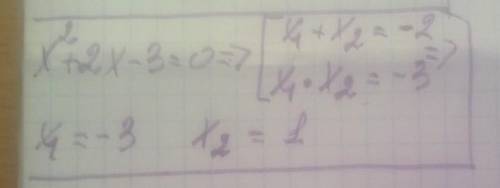 x²+2x-3=0=> [x₁+x₂=-2
x₁·x₂=-3 =>
x₁=-3 x₂=1